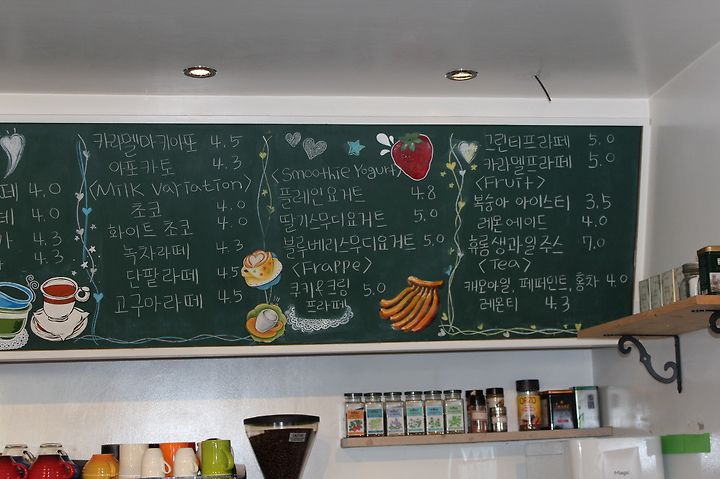 페 4.0
테 4.0
4.3
4.3
카라멜마키아또 4.5
아포카토 4.3
<Milk Variation>
초코 4.0
화이트 초코 4.0
녹차라떼 4.3
단팥라떼 4.5
고구마라떼 4.5
<Smoothie Yogurt>
플레인요거트 4.8
딸기스무디요거트 5.0
블루베리스무디요거트 5.0
<Frappe>
쿠키&크림 5.0
프라페
그린티프라페 5.0
카라멜프라페 5.0
<Fruit>
복숭아 아이스티 3.5
레몬에이드 4.0
휴롬생과일주스 7.0
<Tea>
캐모마일, 페퍼민트, 홍차 4.0
레몬티 4.3
Magic